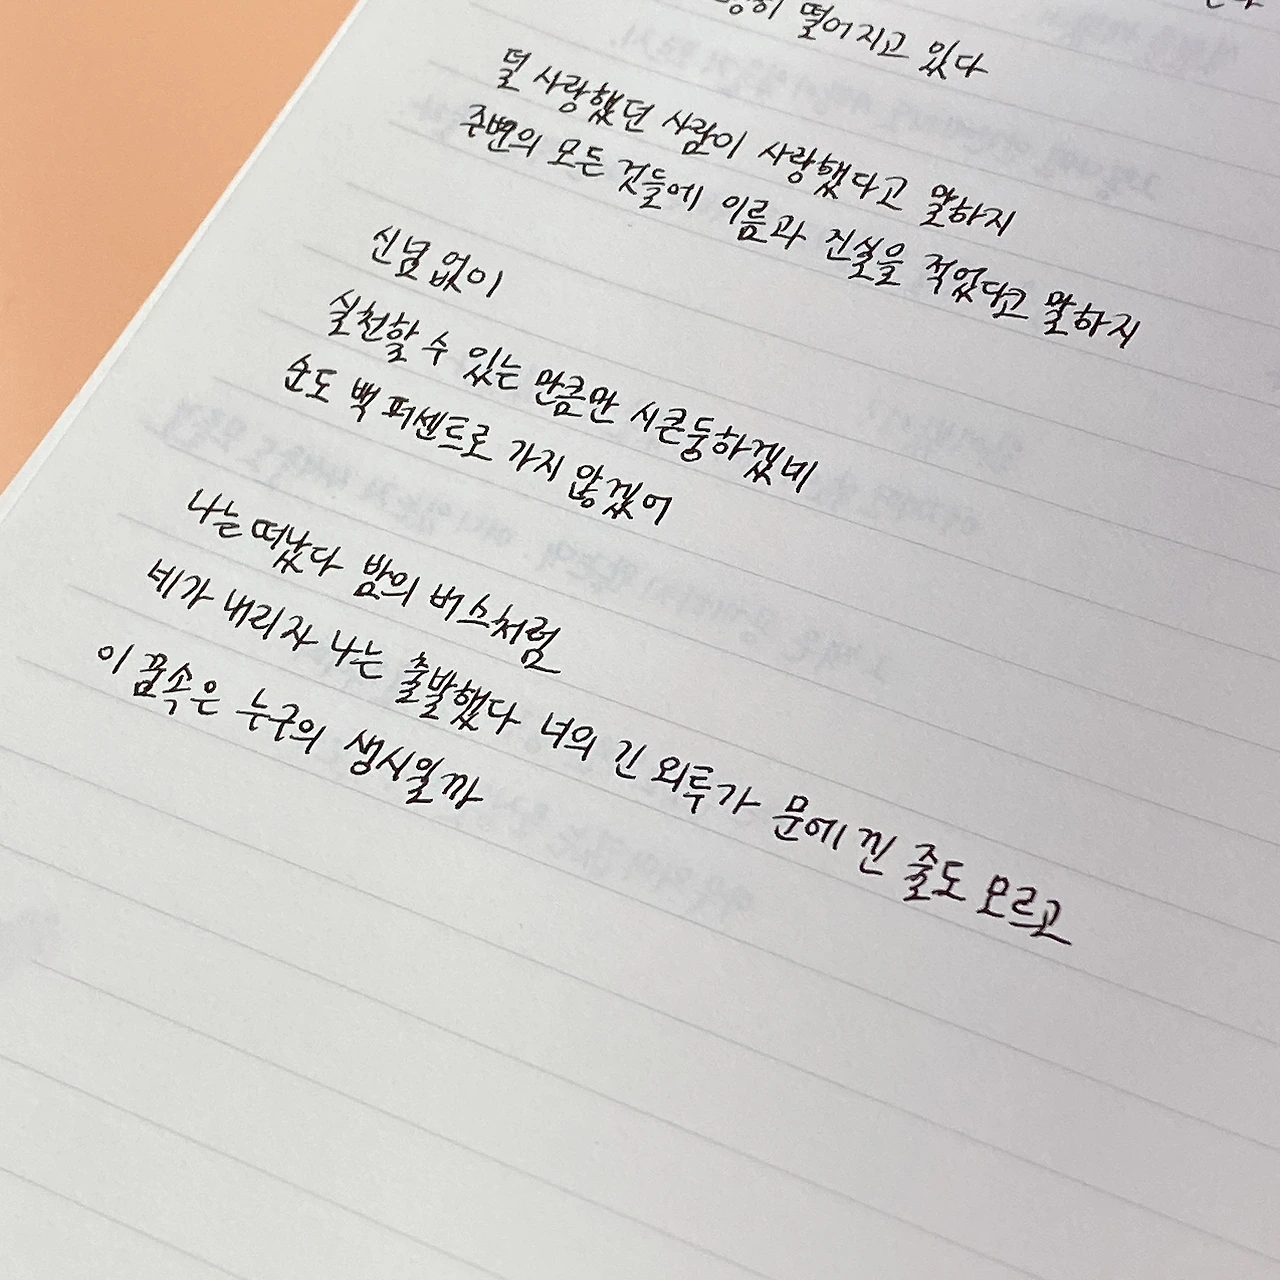 떨어지고 있다
덜 사랑했던 사람이 사랑했다고 말하지
주변의 모든 것들에 이름과 진실을 적었다고 말하지
신념 없이
실천할 수 있는 만큼만 시큰둥하겠네
순도 백 퍼센트로 가지 않겠어
나는 떠났다 밤의 버스처럼
네가 내리자 나는 출발했다 너의 긴 외투가 문에 낀 줄도 모르고
이 꿈속은 누구의 생시일까